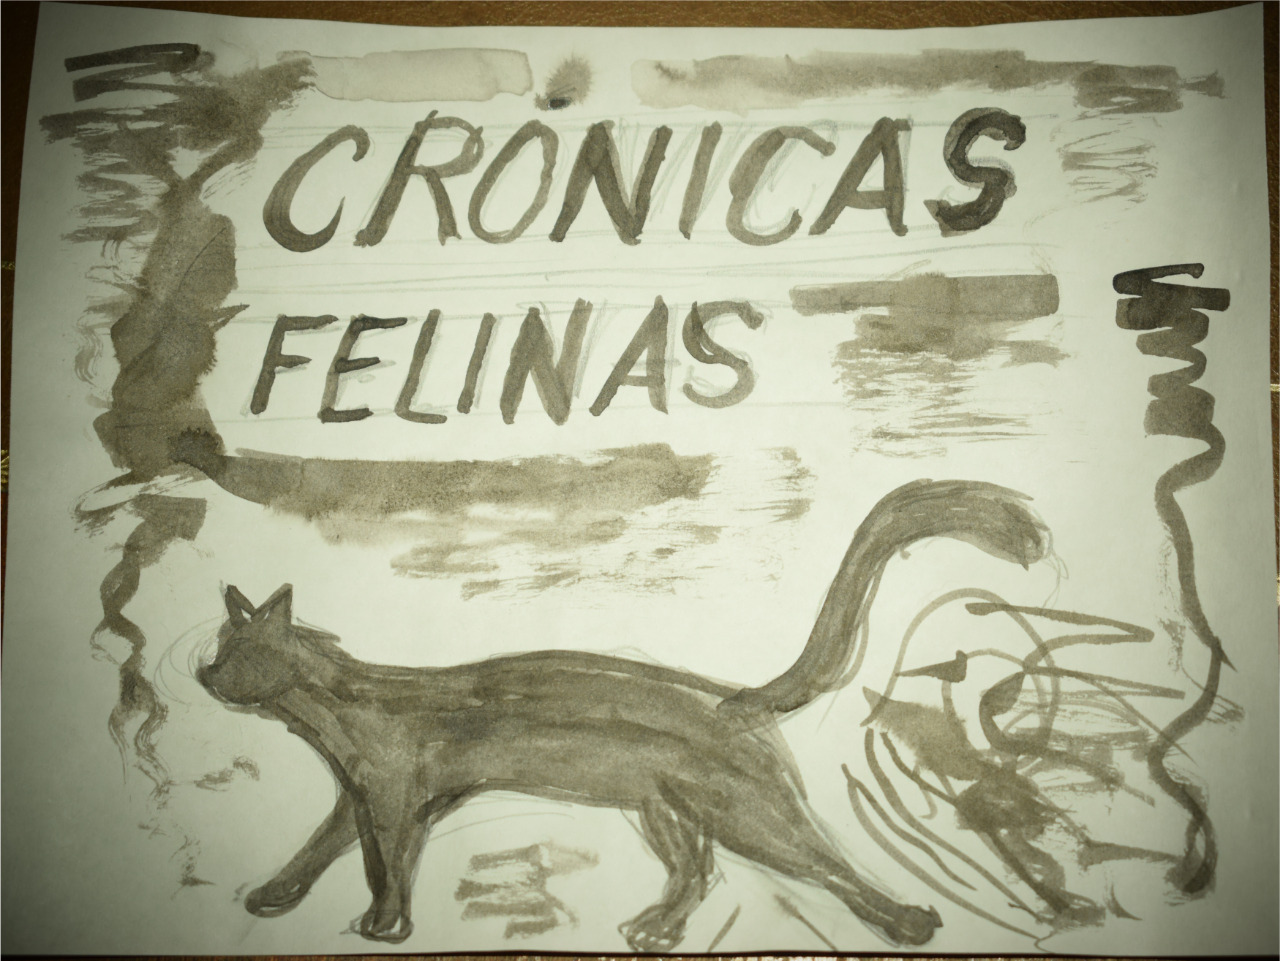 CRÓNICAS
FELINAS